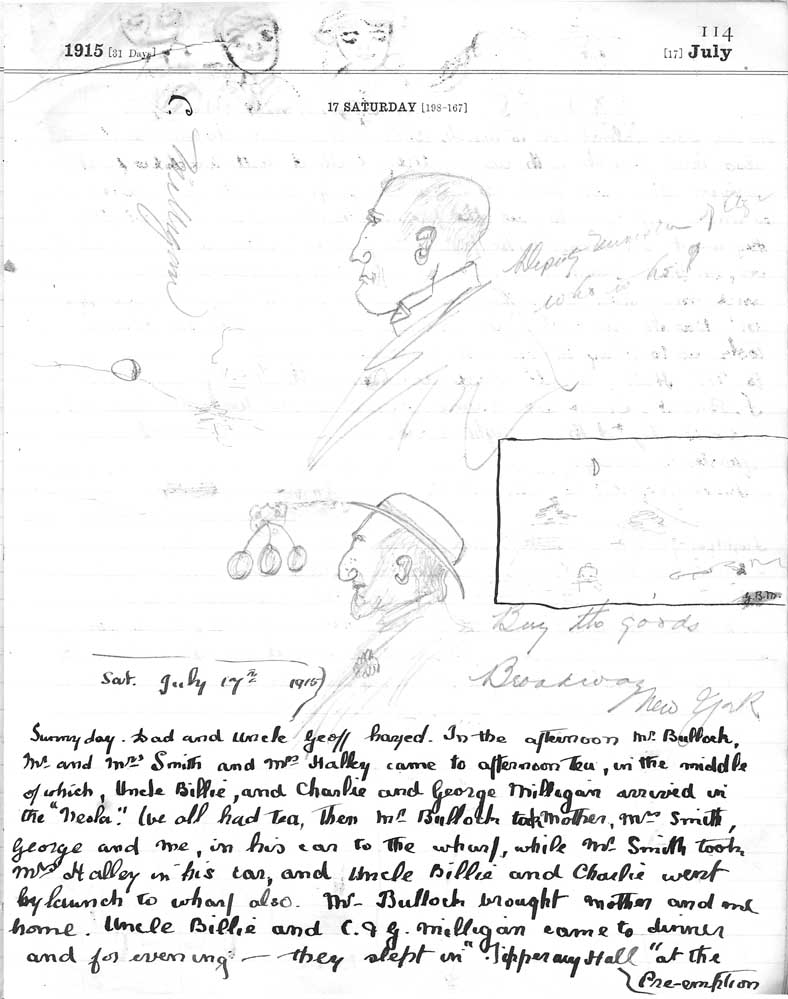 114
1915 [31 Days]
[17] July
17 SATURDAY [198-167]
Milligan
Deputy Minister of
who is he?
G.B.M.
Buy the goods
Broadway
New York
Sat. July 17th 1915
Sunny day. Dad and Uncle Geoff hayed. In the afternoon Mr. Bullock,
Mr. and Mrs Smith and Mrs Halley came to afternoon tea, in the middle
of which, Uncle Billie, and Charlie and George Milligan arrived in
the "Neola". We all had tea, then Mr. Bullock took Mother, Mrs Smith,
George and me, in his car to the wharf, while Mr. Smith took
Mrs Halley in his car, and Uncle Billie and Charlie went
by launch to wharf also. Mr. Bullock brought Mother and me
home. Uncle Billie and C. & G. Milligan came to dinner
and for evening — they slept in "Tipperary Hall" at the
Pre-emption